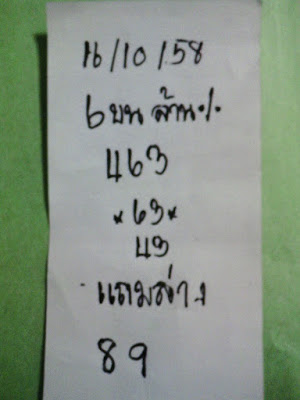 16/10/58
6 บน ล้าน%
463
*63*
43
แถมล่าง
89